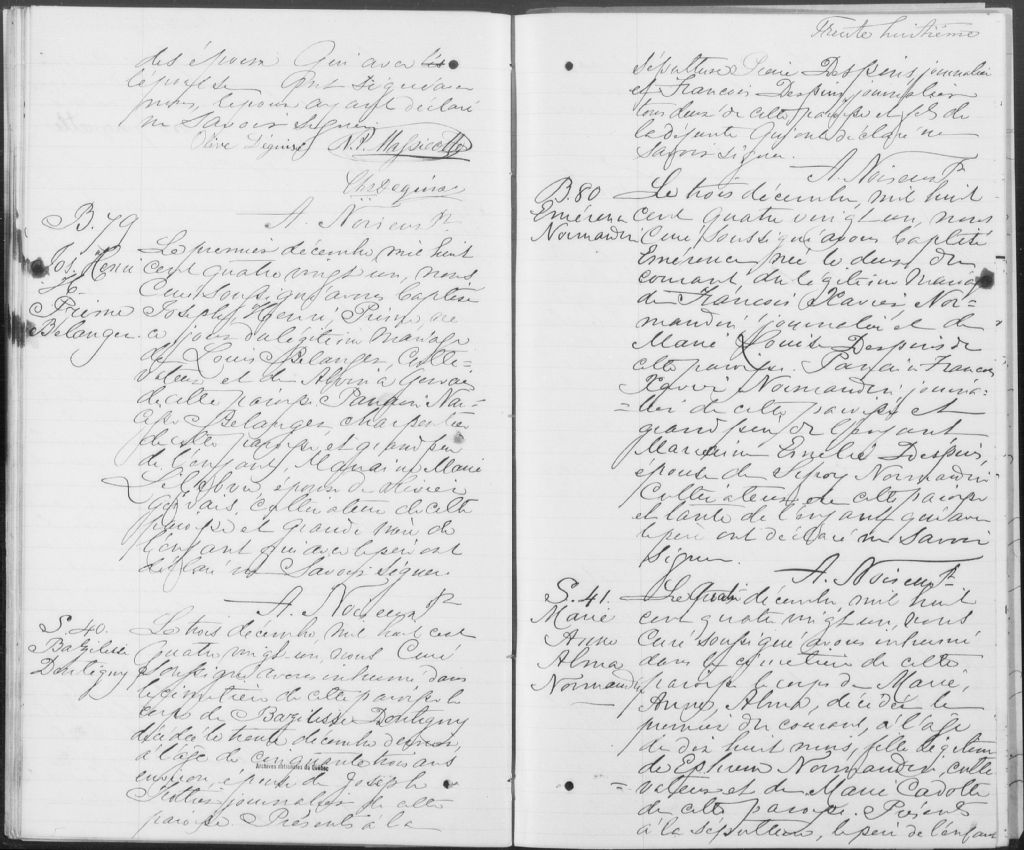 des époux Qui avec les
l'épouse Ont signé avec
nous, l'époux ayant déclaré
ne savoir signer.
Olive Déguise N. P. Massicotte
Chs Deguise
A. Noiseux Ptr
B. 79
Jos. Henri
Prime
Belanger.
Le premier décembre mil huit
cent quatre vingt un, nous
Curé soussigné avons baptisé
Joseph, Henri, Prime, né
ce jour du légitime mariage
de Louis Belanger, Culti-
vateur et de Alvina Gervais
de cette paroisse. Parrain Nar-
cisse Belanger, charpentier
de cette paroisse et grand père
de l'enfant, Marraine Marie
épouse de Olivier
Gervais, cultivateur de cette
paroisse et grande mère de
l'enfant qui avec le père ont
déclaré ne Savoir signer.
A. Noiseux Ptr
S. 40.
Bazilisse
Dontigny
Le trois décembre, mil huit cent
quatre vingt un, nous Curé
soussigné avons inhumé dans
le cimetière de cette paroisse le
corps de Bazilisse Dontigny
décédée le trente décembre dernier,
à l'âge de cinquante trois ans
environ, épouse de Joseph
journalier de cette
paroisse. Présents à la
Archives nationales du Québec
Trente huitième
sépulture Despins, journalier
et Francois Despins, journalier
tous deux de cette paroisse et fils de
la défunte Qui ont déclaré ne
savoir signer.
A. Noiseux Ptr
B. 80
Emérence
Normandin
Le trois décembre, mil huit
cent quatre vingt un, nous
Curé soussigné avons baptisé
Emérence, née le deux du
courant, du légitime mariage
de Francois Xavier Nor-
mandin journalier et de
Marie Louise Despins de
cette paroisse. Parrain Francois
Xavier Normandin, journa-
lier de cette paroisse et
grand père de l'enfant
Marraine Emélie Despins,
épouse de Normandin
Cultivateur de cette paroisse
et tante de l'enfant qui avec
le père ont déclaré ne savoir
signer.
A. Noiseux Ptr
S. 41.
Marie
Anne
Alma
Normandin
Le quatre décembre, mil huit
cent quatre vingt un, nous
Curé soussigné avons inhumé
dans le cimetière de cette
paroisse le corps de Marie,
Anne, Alma, décédée le
premier du courant, à l'âge
de dix huit mois, fille légitime
de Ephrem Normandin, culti
vateur et de Marie Cadotte
de cette paroisse. Présents
à la sépulture, le père de l'enfant